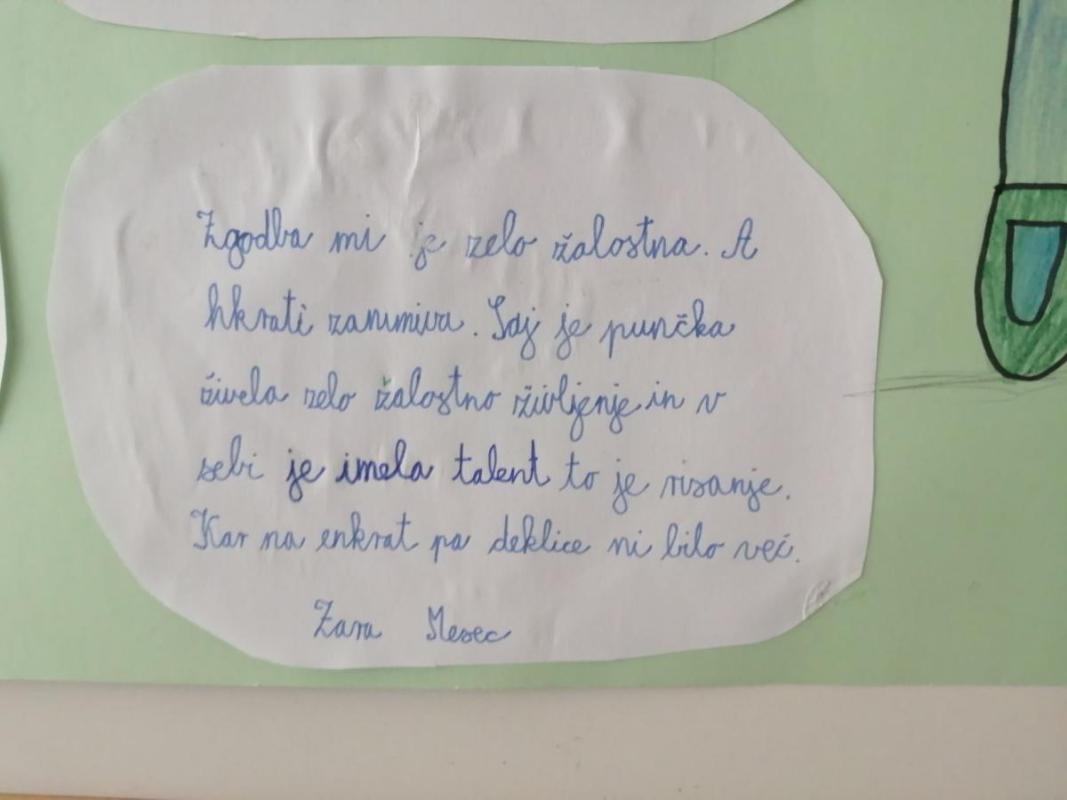 Zgodba mi je zelo žalostna. A
hkrati zanimiva. Saj je punčka
živela zelo žalostno življenje in v
sebi je imela talent to je risanje.
Kar na enkrat pa deklice ni bilo več.
Zara Mesec